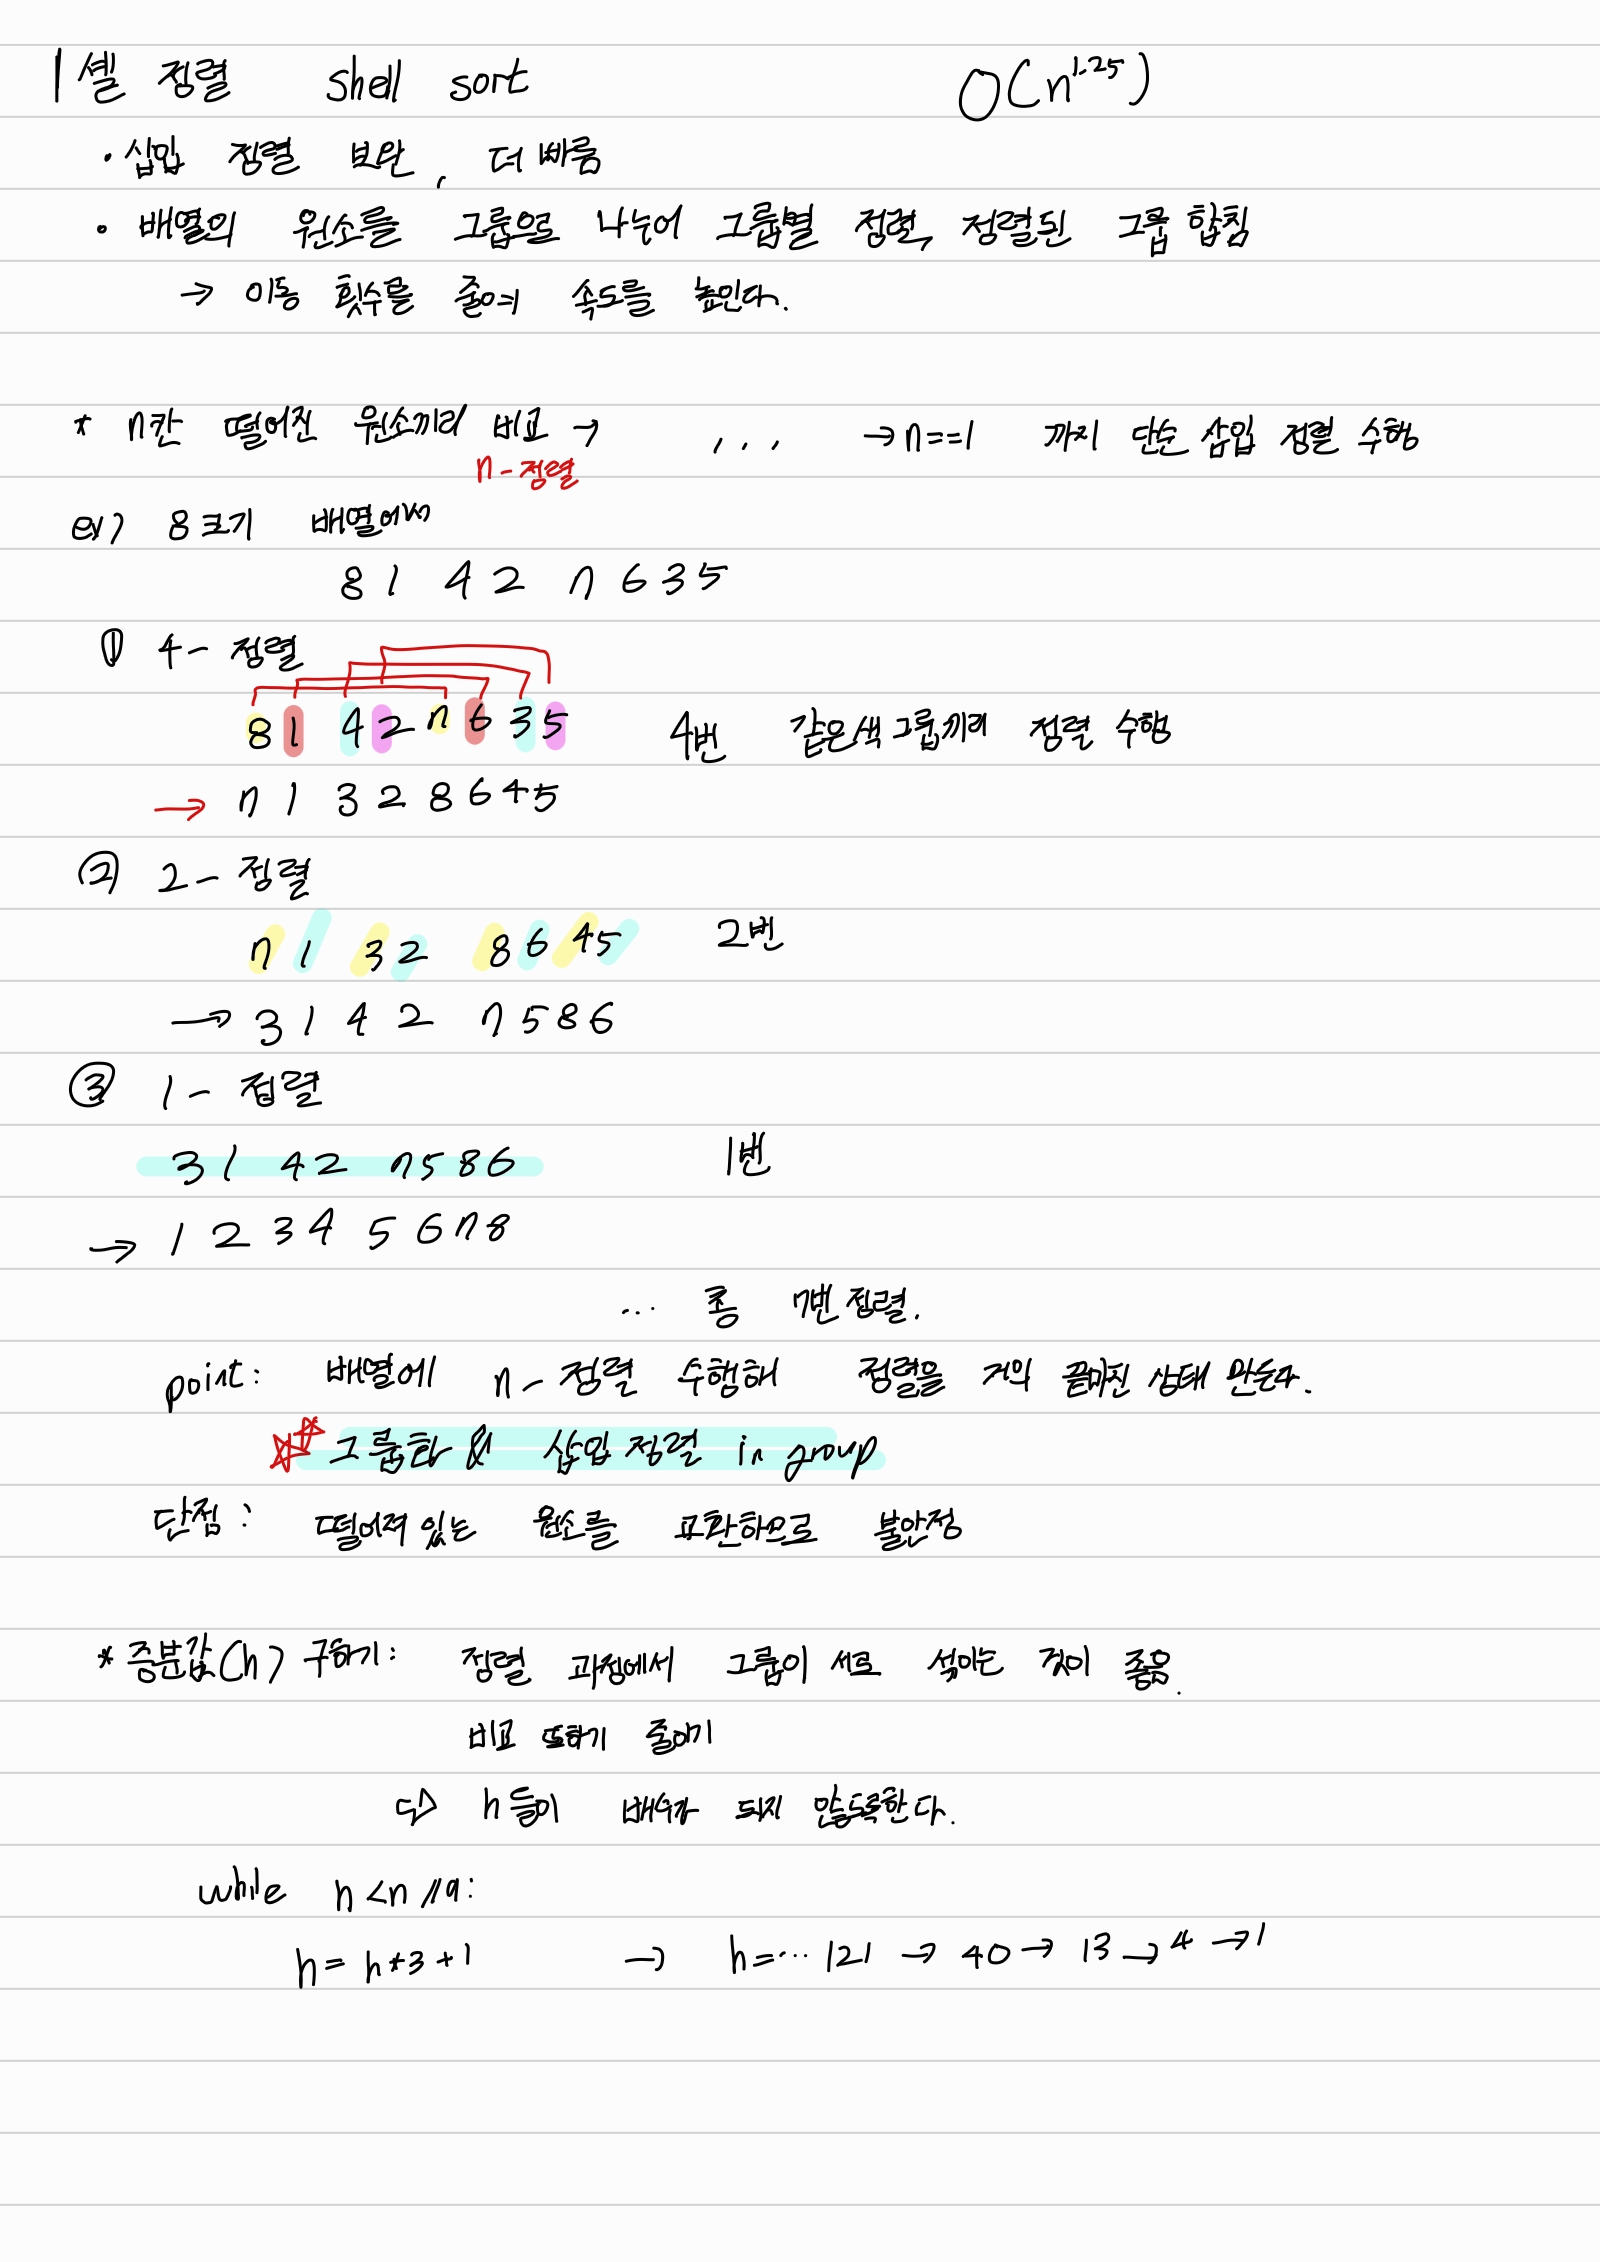 셸 정렬 shell sort O(n^1.25)
· 삽입 정렬 보완, 더 빠름
· 배열의 원소를 그룹으로 나누어 그룹별 정렬, 정렬된 그룹 합침
→ 이동 횟수를 줄여 속도를 높인다.
* n칸 떨어진 원소끼리 비교 → , , , → n==1 까지 단순 삽입 정렬 수행
n-정렬
ex) 8크기 배열에서
8 1 4 2 7 6 3 5
① 4- 정렬
8 1 4 2 7 6 3 5 4번 같은색 그룹끼리 정렬 수행
→ 7 1 3 2 8 6 4 5
② 2- 정렬
7 1 3 2 8 6 4 5 2번
→ 3 1 4 2 7 5 8 6
③ 1- 정렬
3 1 4 2 7 5 8 6 1번
→ 1 2 3 4 5 6 7 8
... 총 7번 정렬.
point: 배열에 n- 정렬 수행해 정렬을 거의 끝마친 상태 만든다.
그룹화 & 삽입 정렬 in group
단점: 떨어져 있는 원소를 교환하므로 불안정
* 증분값(h) 구하기: 정렬 과정에서 그룹이 서로 섞이는 것이 좋음.
비교 또하기 줄이기
⇨ h들이 배수가 되지 않도록한다.
while h < n //9:
h = h*3+1 → h=... 121 → 40 → 13 → 4 → 1